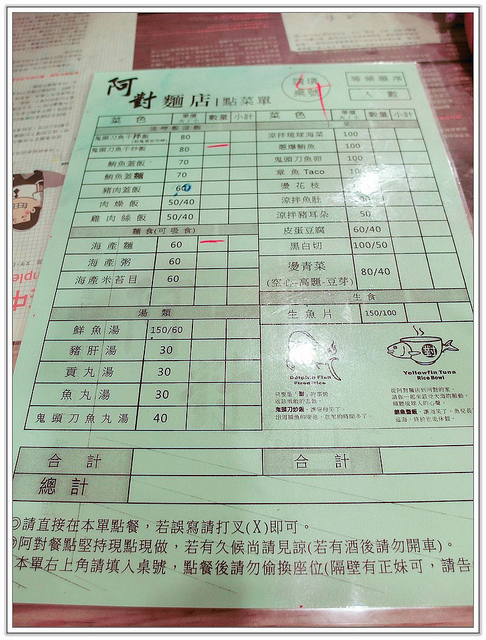 阿對麵店 點菜單
菜色 數量 小計 菜色 數量 小計
鬼頭刀魚手拌飯 80 涼拌琉球海菜 100
鬼頭刀魚干炒飯 80 蔥爆鮪魚 100
鮪魚蓋飯 70 鬼頭刀魚卵 100
鮪魚蓋麵 70 章魚Taco
豬肉蓋飯 60 燙花枝
肉燥飯 50/40 涼拌魚肚
雞肉絲飯 50/40 涼拌豬耳朵 50
麵食(可吸食) 皮蛋豆腐 60/40
海產麵 60 黑白切 100/50
海產粥 60 燙青菜 80/40
海產米苔目 60 (空心-高麗-豆芽)
湯類 生食
鮮魚湯 150/60 生魚片 150/100
豬肝湯 30
貢丸湯 30
魚丸湯 30
鬼頭刀魚丸湯 40
Dolphin Fish
Fried Rice
Yellowfin Tuna
Rice Bowl
合計 合計
總計
◎請直接在本單點餐，若誤寫請打叉(X)即可。
◎阿對餐點堅持現點現做，若有久候尚請見諒(若有酒後請勿開車)。
本單右上角請填入桌號，點餐後請勿偷換座位(隔壁有正妹可，請告